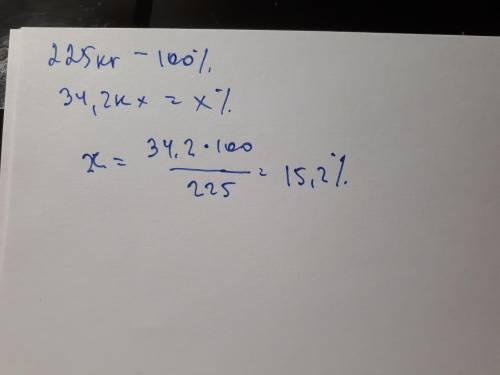 225кг - 100%.
34,2кг = x%
x = 34,2·100 / 225 = 15,2%.